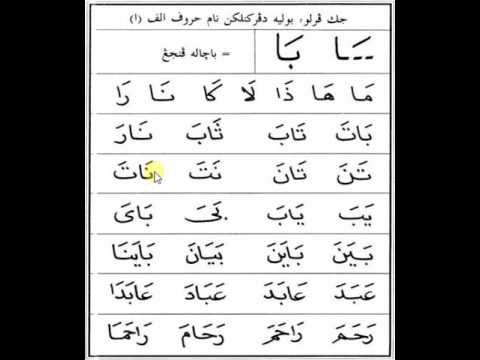 جك ڤرلو، بوليه دڤركنلكن نام حروف الف (ا)
--َا بَا = باچاله ڤنجڠ
مَا هَا ذَا لَا كَا نَا رَا
بَاتَ تَابَ ثَابَ نَارَ
تَنَ تَانَ نَتَ نَاتَ
يَبَ يَابَ بَىَ بَاىَ
بَيَنَ بَايَنَ بَيَانَ بَايَنَا
عَبَدَ عَابَدَ عَبَادَ عَابَدَا
رَحَمَ رَاحَمَ رَحَامَ رَاحَمَا